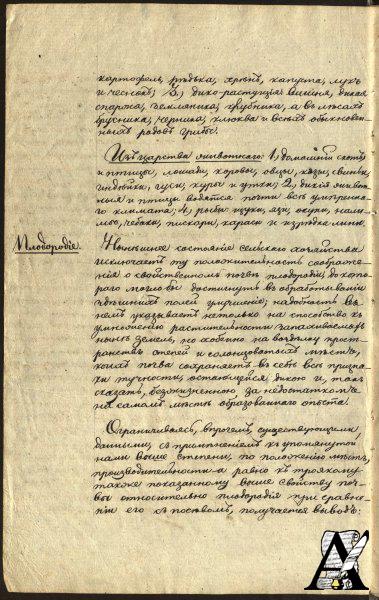 картофель, рѣдька, хрѣнъ, капуста, лукъ
и чеснокъ; 3, дико-растущія вишня, дикая
спаржа, земляника, клубника, а въ лѣсахъ
брусника, черника, клюква и всѣхъ обыкновен-
ныхъ родовъ грибы.
Изъ царства животнаго: 1, домашній скотъ
и птицы, лошади, коровы, овцы, козы, свиньи,
индѣйки, гуси, куры и утки; 2, дикія живот-
ныя и птицы водятся почти всѣ умѣренна-
го климата; 4, рыбы щуки, язи, окуни, нали-
мы, чебаки, пискари, караси и изрѣдка лини.
Плодородіе.
Нынѣшнее состояніе сельскаго хозяйства
исключаетъ ту положительность соображе-
нія о свойственномъ почвѣ плодородіи до кото-
раго могло бы достигнуть въ обработываніи
здѣшнихъ полей умѣніе; надобность въ
немъ указываетъ не только на способность къ
умноженію растительности запахиваемыхъ
нынѣ земель, но особенно на воздѣлку прост-
ранствъ степей и солонцоватыхъ мѣстъ,
коихъ почва сохраняетъ въ себѣ всѣ призна-
ки тучности, остающейся дикою и, такъ
сказать, безжизненною за недостаткомъ
на самомъ мѣстѣ образованнаго опыта.
Ограничиваясь, впрочемъ, существующими
данными, съ примѣненіемъ къ упомянутой
нами выше степени, по положенію мѣстъ,
производительности а равно къ троякому
также показанному выше свойству поч-
вы относительно плодородія при сравне-
ніи его къ посѣвамъ, получается выводъ: